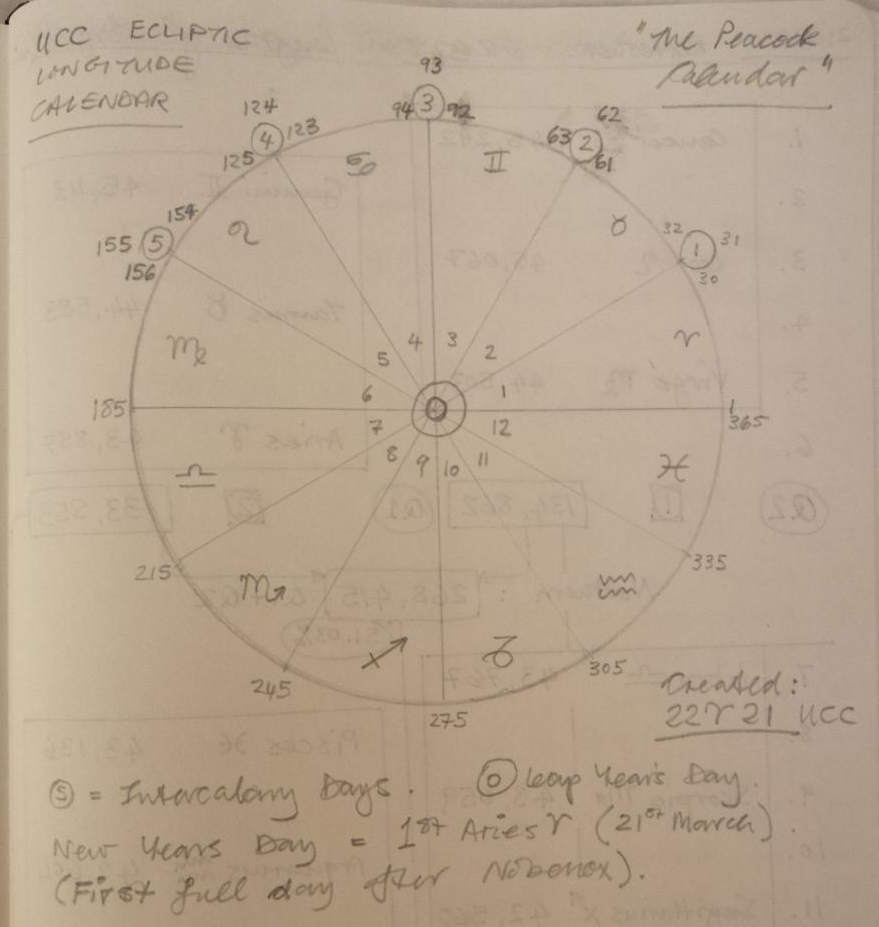 UCC ECLIPTIC
LONGITUDE
CALENDAR
"The Peacock
Calendar"
93
94 3 92
124
4 123
125
62
63 2
61
♋ ♊
154
155 5
156
♌ ♉
32 1 31
30
♍ ♈
4 3
5 2
6 1
7 12
8 9 10 11
185
1
365
♎ ♓
215
335
♏ ♒
♐ ♑
245
305
275
Created:
22♈21 UCC
5 = Intercalary Days. 0 Leap Year's Day.
New Years Day = 1st Aries ♈ (21st March)
(First full day after Nobonox).